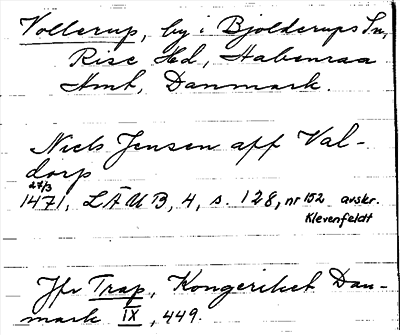 Vollerup, by i Bjolderups Sn,
Rise Hd, Aabenraa
Amt, Danmark.
Niels Jensen aff Val-
dorp
27/3
1471, LÄUB, 4, s. 128, nr 152 avskr.
Klevenfeldt
Jfr Trap, Kongeriket Dan-
mark IX, 449.